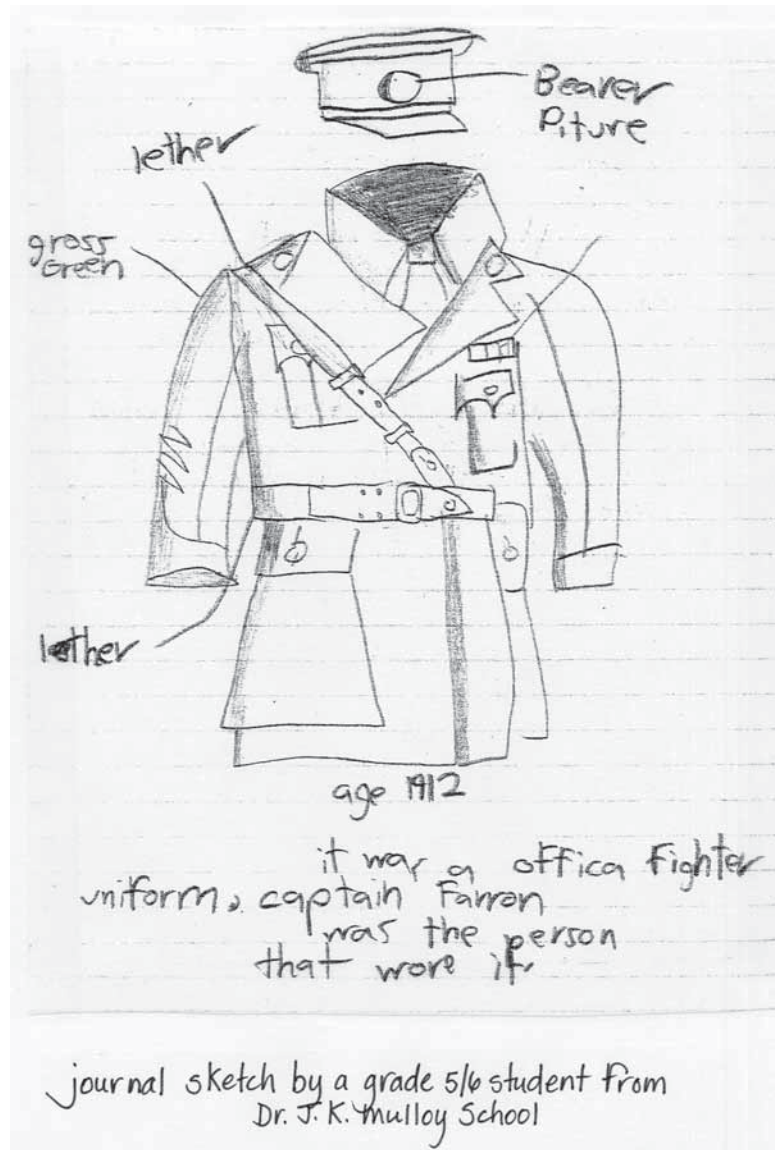 Bearer
Piture
lether
grass
Green
lether
age 1912
it was a offica fighter
uniform, captain Farron
was the person
that wore it.
journal sketch by a grade 5/6 student from
Dr. J. K. Mulloy School